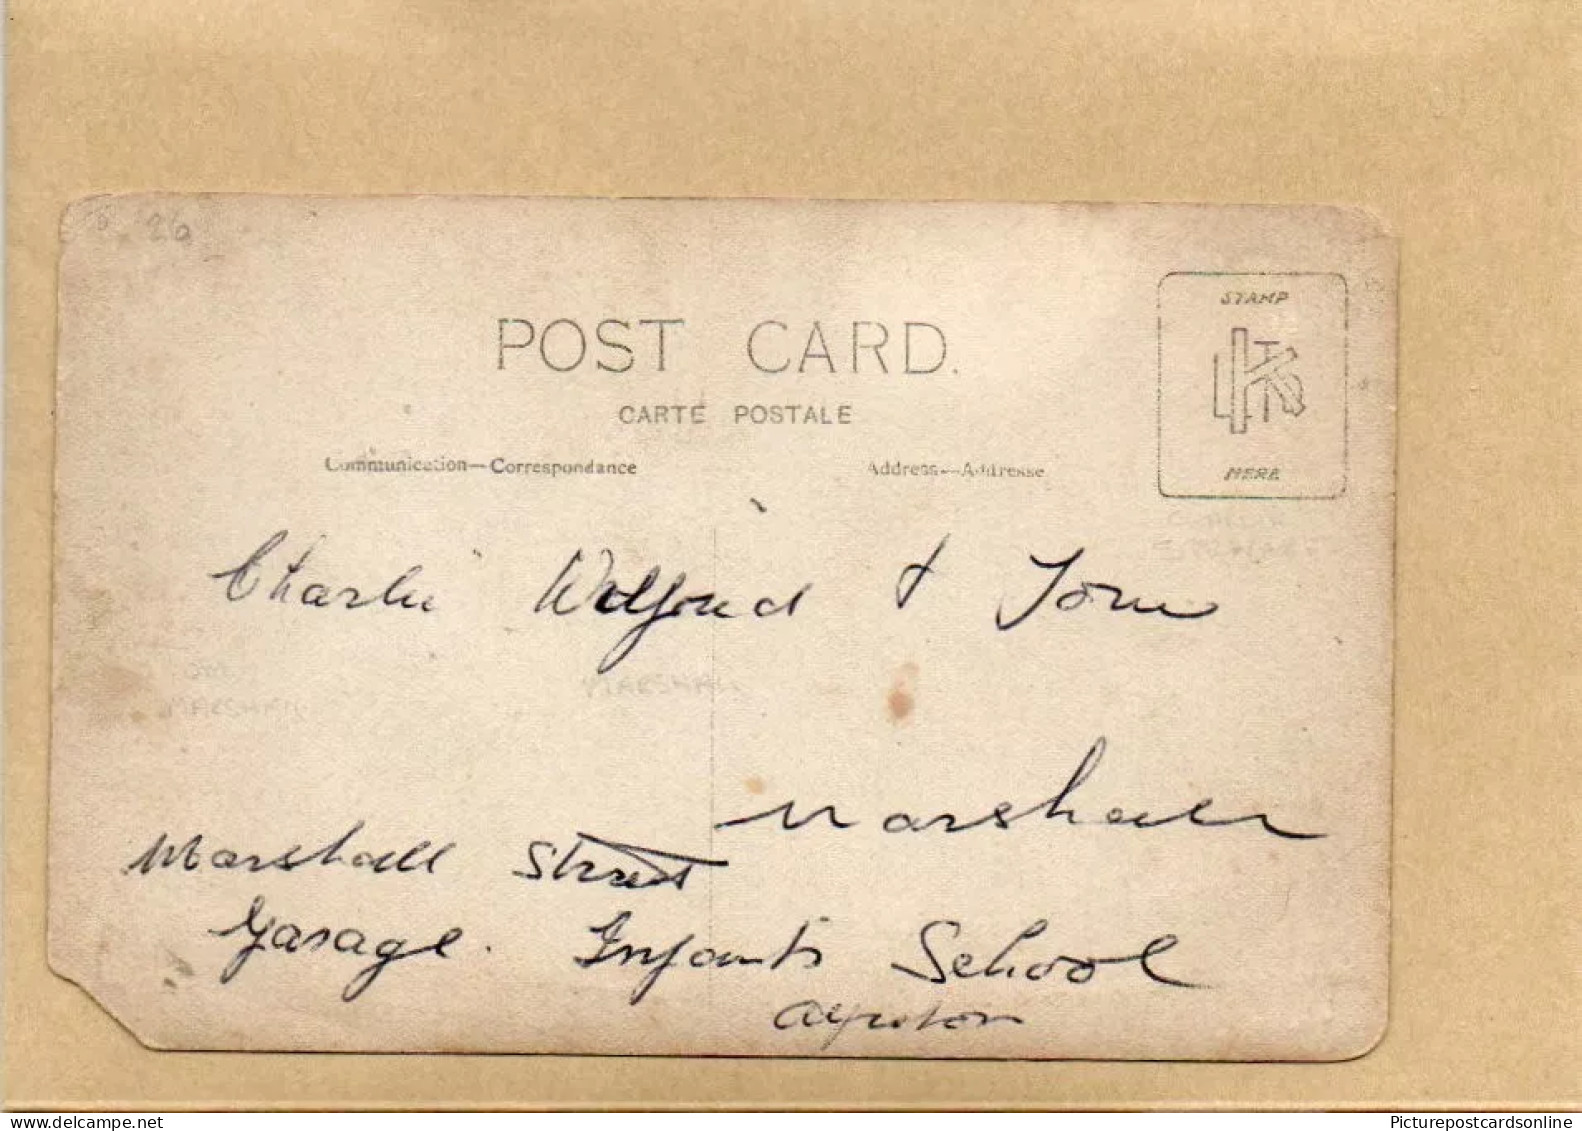 26
POST CARD.
CARTE POSTALE
Communication—Correspondance
Address—Addresse
STAMP
HERE
Charlie Wilford + Tom
MARSHALL
MARSHALL
Marshall
Marshall Street
Garage. Infants School
Picturepostcardsonline